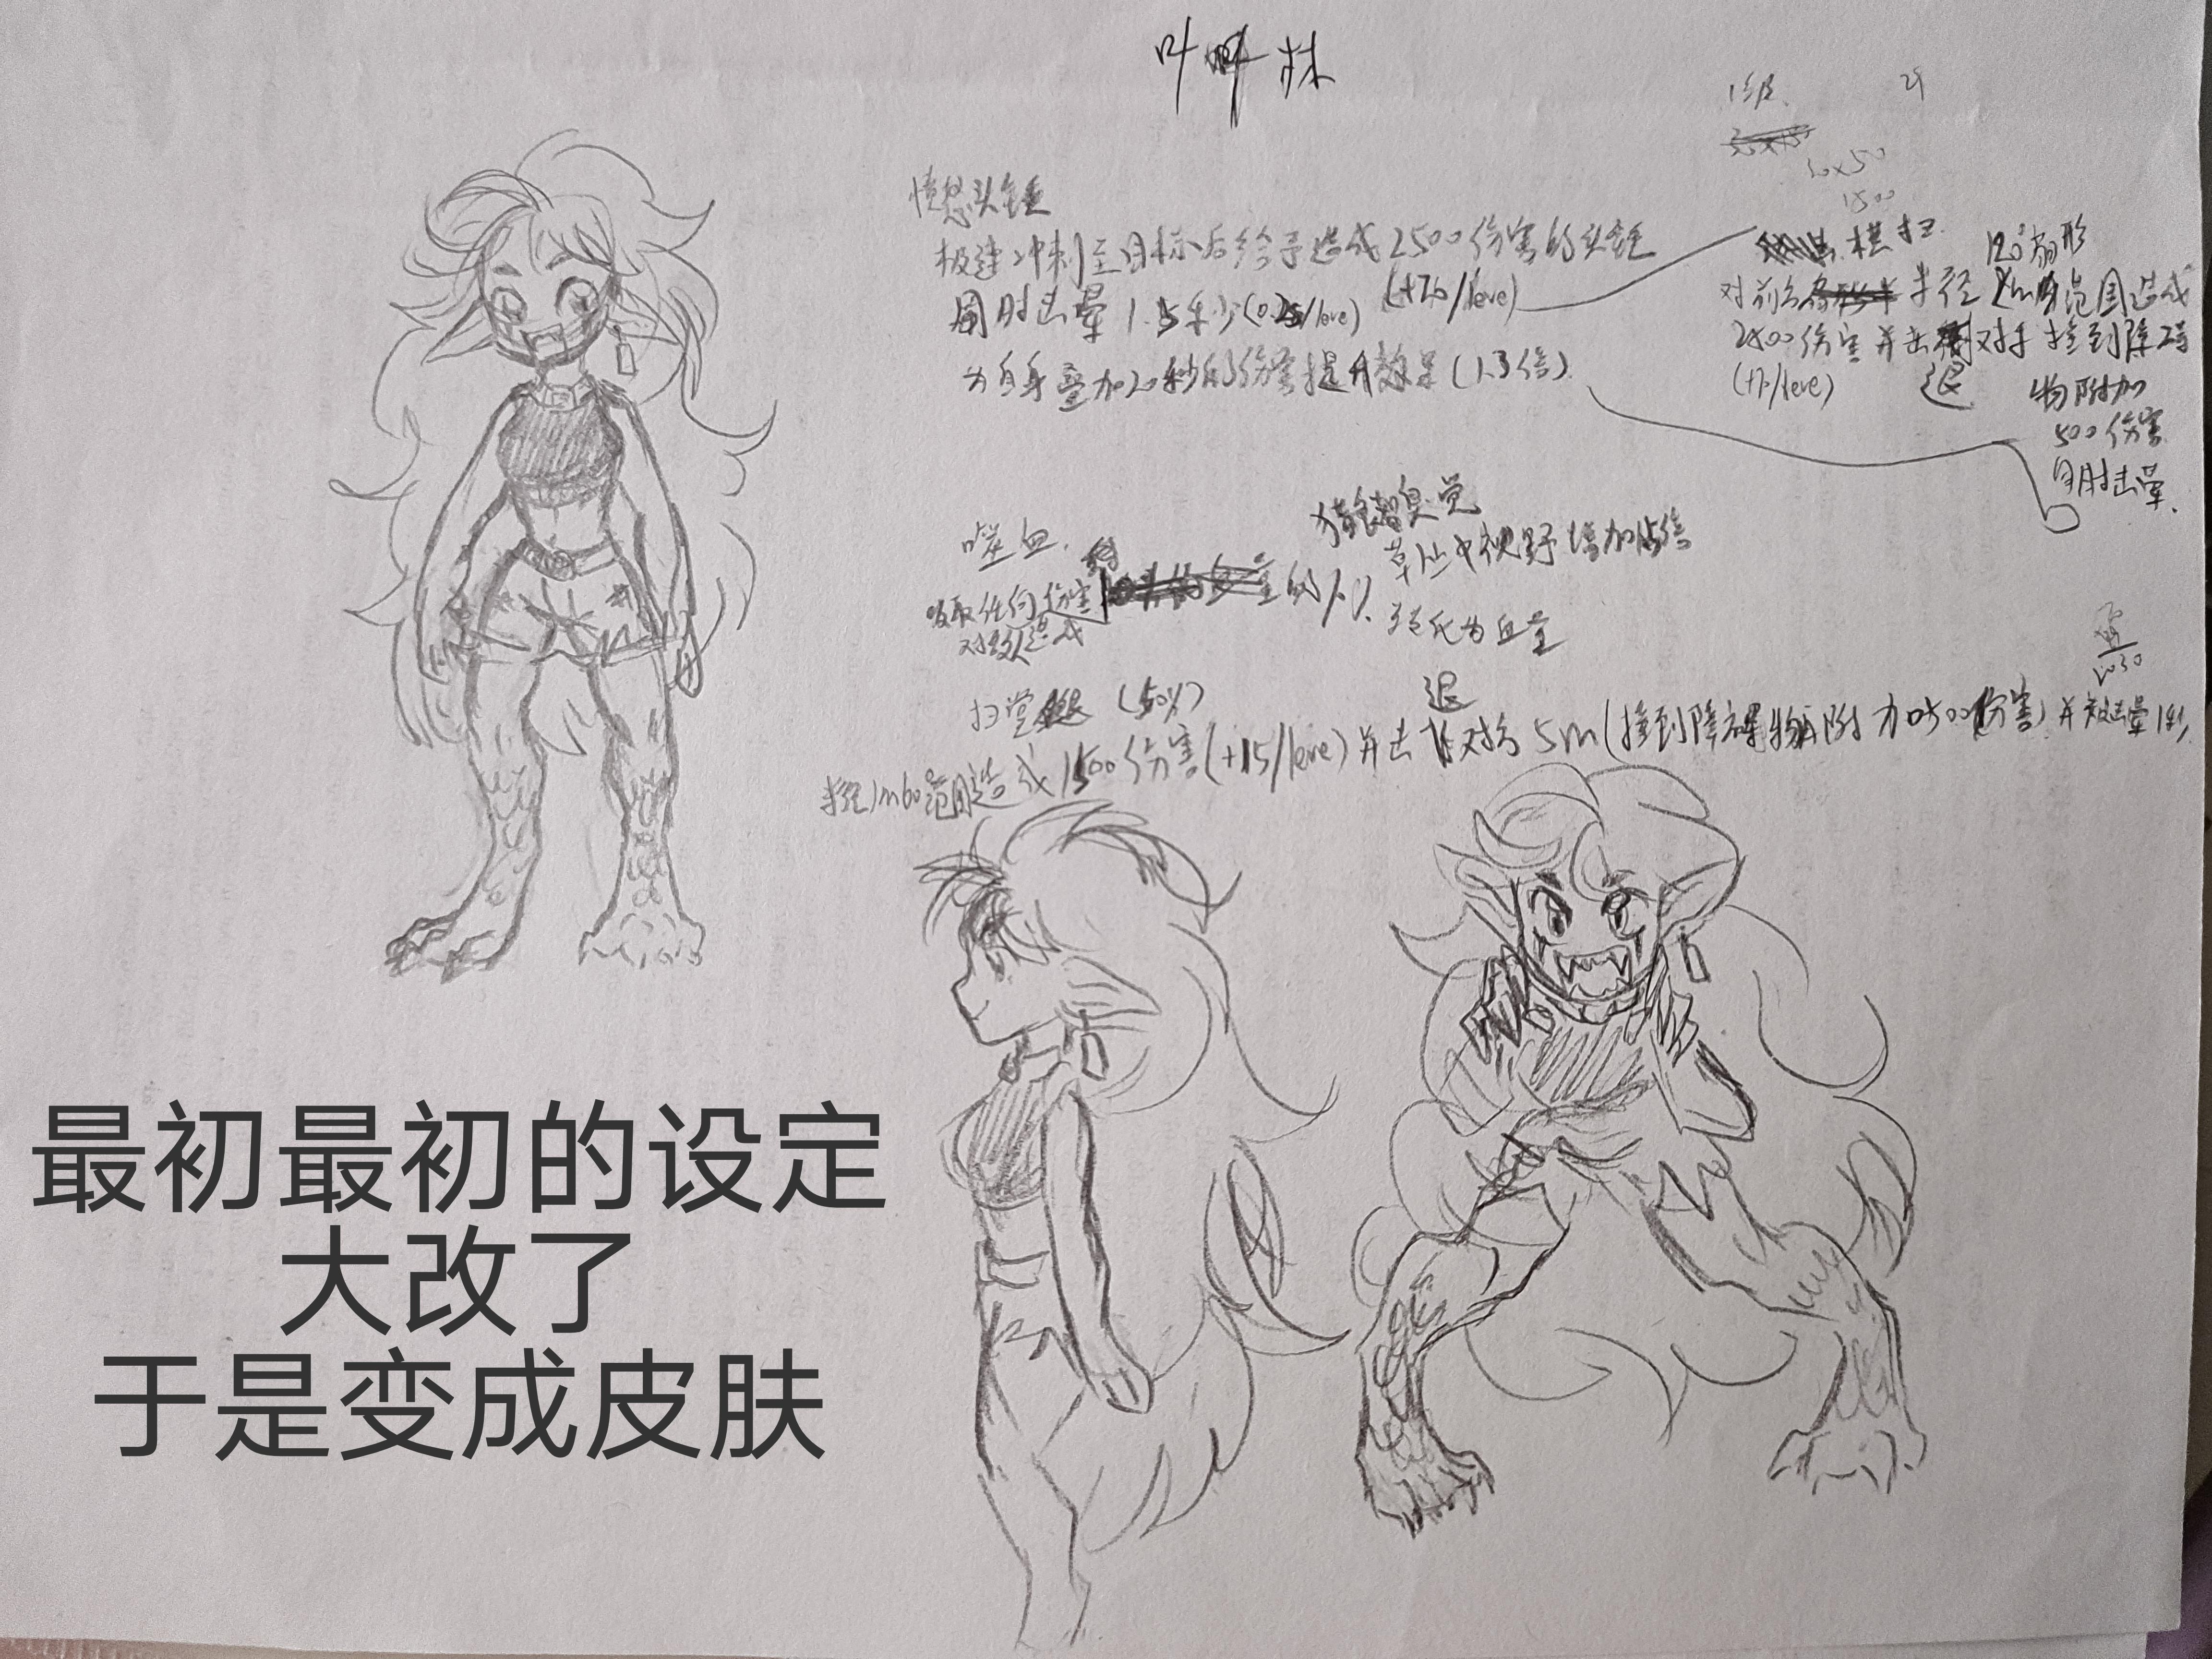 叶 林
1级
30x50
1500
愤怒头锤
极速冲刺至目标后给予造成2500伤害的头锤
(+70/leve)
同时击晕1.5秒(0.25/leve)
为自身叠加20秒的伤害提升效果(1.3倍)
横扫
120°扇形
对前方半径2m的范围造成
2800伤害并击退对手撞到障碍
(+7/leve)
物附加
500伤害
同时击晕.
噬血.
吸取任何伤害
对敌人造成
的1%
转化为血量
猎狼嗅觉
草丛中视野增加1.5倍
扫堂腿 (50%)
半径1m60°范围造成1500伤害(+15/leve)并击退对方5m(撞到障碍物附加500伤害)并被击晕1秒
最初最初的设定
大改了
于是变成皮肤